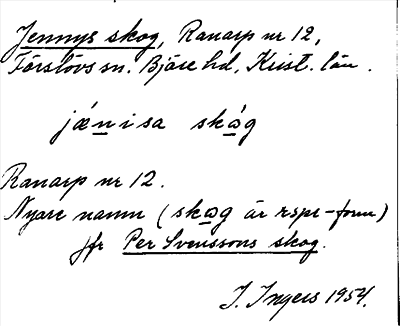 Jennys skog, Ranarp nr 12,
Förslövs sn. Bjäre hd, Krist. län.
jǽnisa skǻg
Ranarp nr 12.
Nyare namn (skog är rspr-form)
jfr Per Svenssons skog.
I. Ingers 1954.